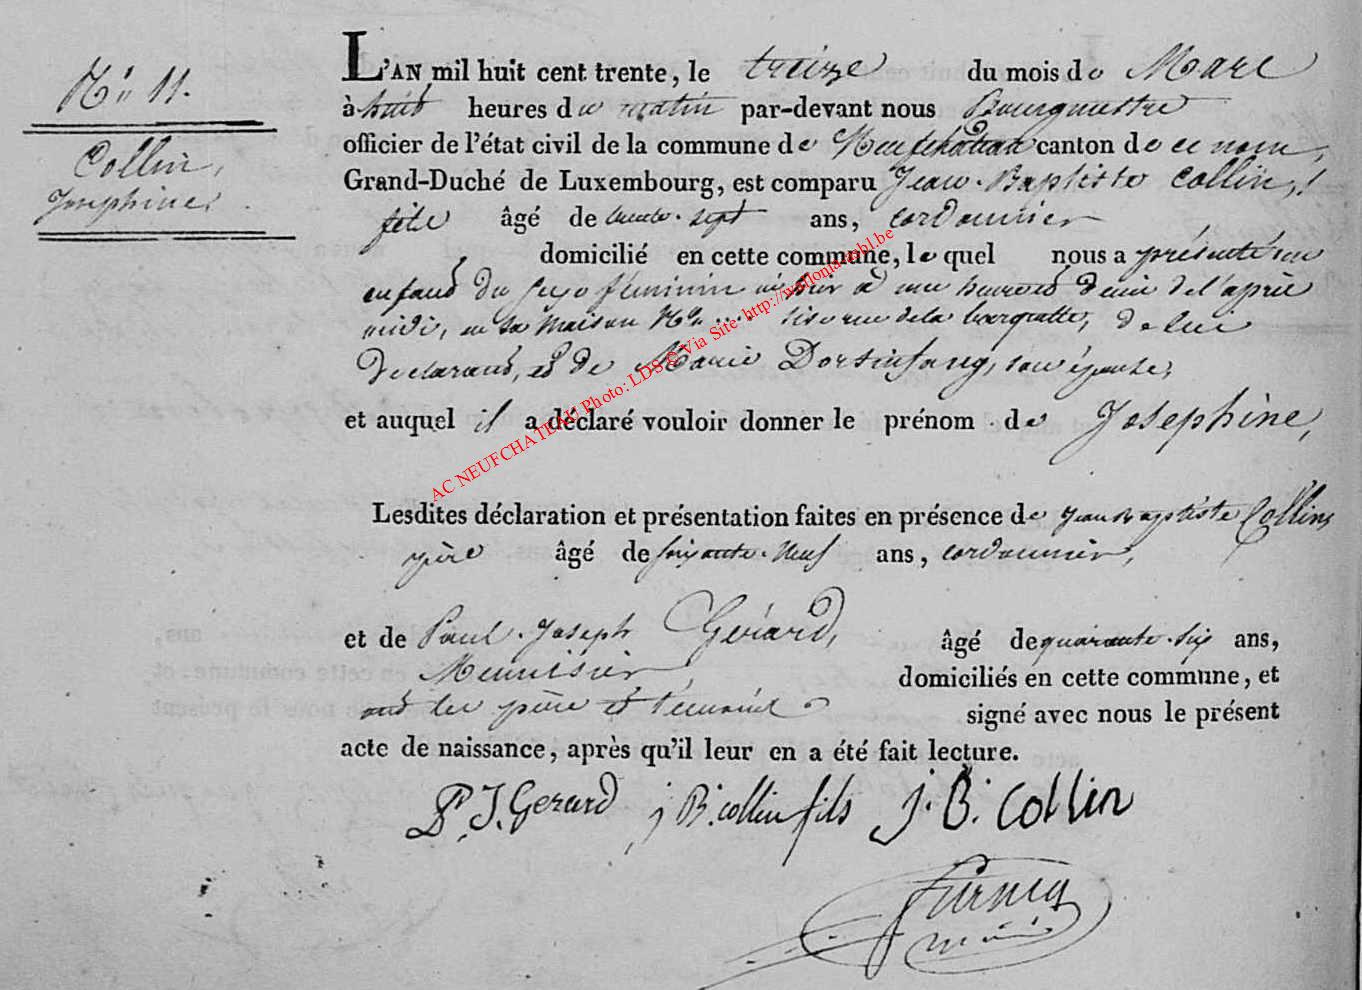 N.° 11.
Collin,
Josephine.
L'AN mil huit cent trente, le treize du mois de Mars
à huit heures du matin par-devant nous Bourgmestre
officier de l'état civil de la commune de Neufchateau canton de ce nom,
Grand-Duché de Luxembourg, est comparu Jean-Baptiste Collin,
fils âgé de trente-sept ans, cordonnier
domicilié en cette commune, lequel nous a présenté un
enfant du sexe féminin né hier à une heure et demie de l'après
midi, en sa maison N.° .... sise rue de la , de lui
Déclarant, et de Marie Dorsinfang, son épouse,
et auquel il a déclaré vouloir donner le prénom de Josephine,
Lesdites déclaration et présentation faites en présence de Jean Baptiste Collin,
père âgé de soixante-neuf ans, cordonnier,
et de Paul-Joseph Gérard, âgé de quarante-six ans,
Menuisier, domiciliés en cette commune, et
ont les père et témoins signé avec nous le présent
acte de naissance, après qu'il leur en a été fait lecture.
P. J. Gerard j B. collin fils j. B. collin
AC NEUFCHATEAU Photo: LDS © Via Site: http://wallonia-asbl.be